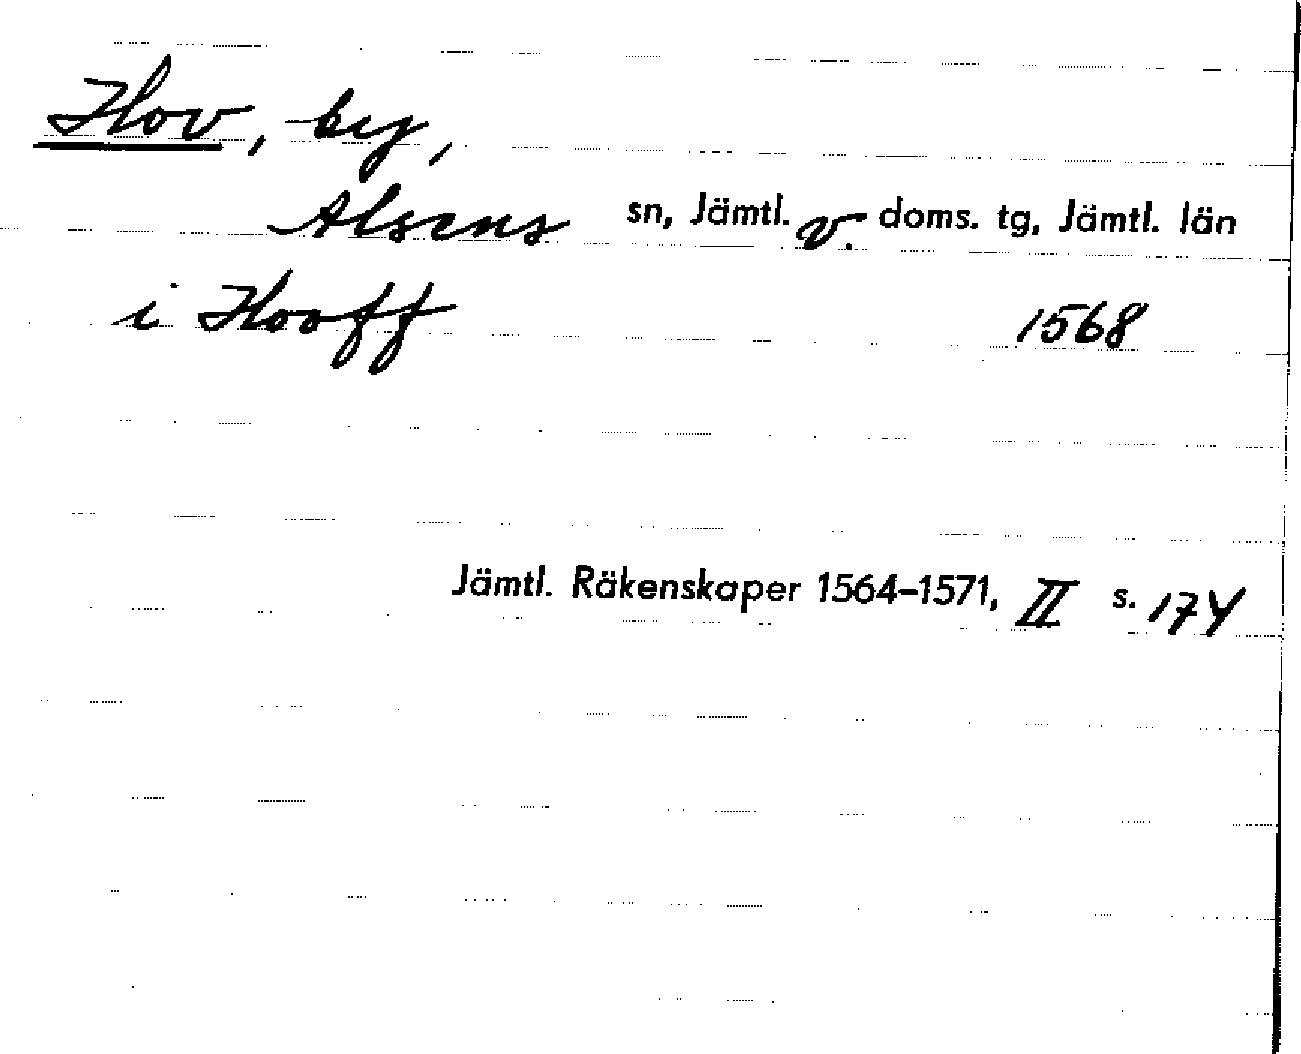 Hov, by,
Alsens sn, Jämtl. v. doms. tg, Jämtl. län
i Hooff 1568
Jämtl. Räkenskaper 1564-1571, II s. 174